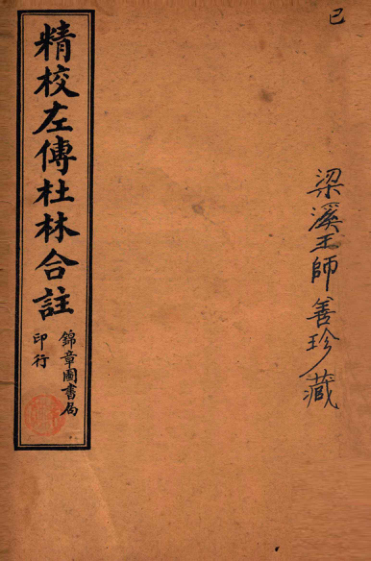 已
梁溪王師善珍藏
精校左傳杜林合註
錦章圖書局
印行